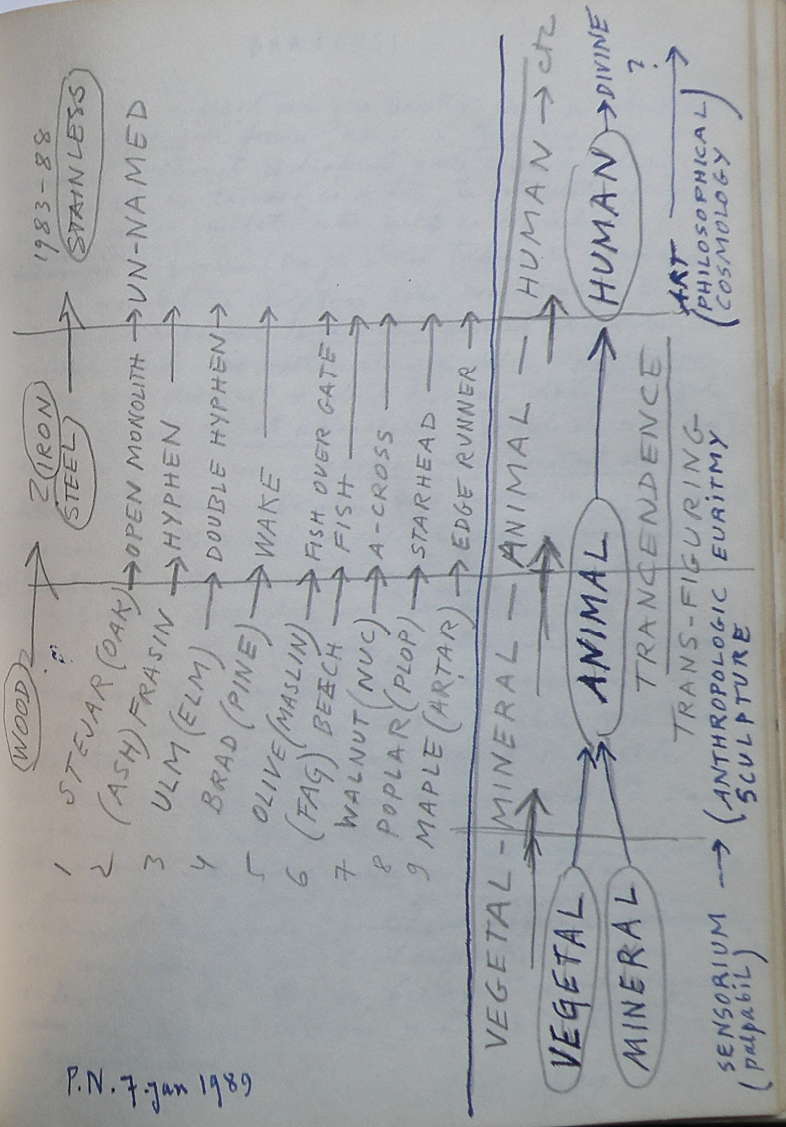 WOOD → 2 IRON 1983-88
STEEL → STAINLESS
1 STEJAR (OAK) → OPEN MONOLITH → UN-NAMED
2 (ASH) FRASIN → HYPHEN →
3 ULM (ELM) → DOUBLE HYPHEN →
4 BRAD (PINE) → WAKE →
5 OLIVE (MASLIN) → FISH OVER GATE →
6 (FAG) BEECH → FISH →
7 WALNUT (NUC) → A-CROSS →
8 POPLAR (PLOP) → STARHEAD →
9 MAPLE (ARTAR) → EDGE RUNNER →
VEGETAL - MINERAL - ANIMAL - HUMAN → etc
VEGETAL
MINERAL
ANIMAL → HUMAN → DIVINE
?
TRANCENDENCE
TRANS-FIGURING
ART →
SENSORIUM → (ANTHROPOLOGIC EURITMY (PHILOSOPHICAL)
(palpabil) SCULPTURE COSMOLOGY
P.N. 7. jan 1989